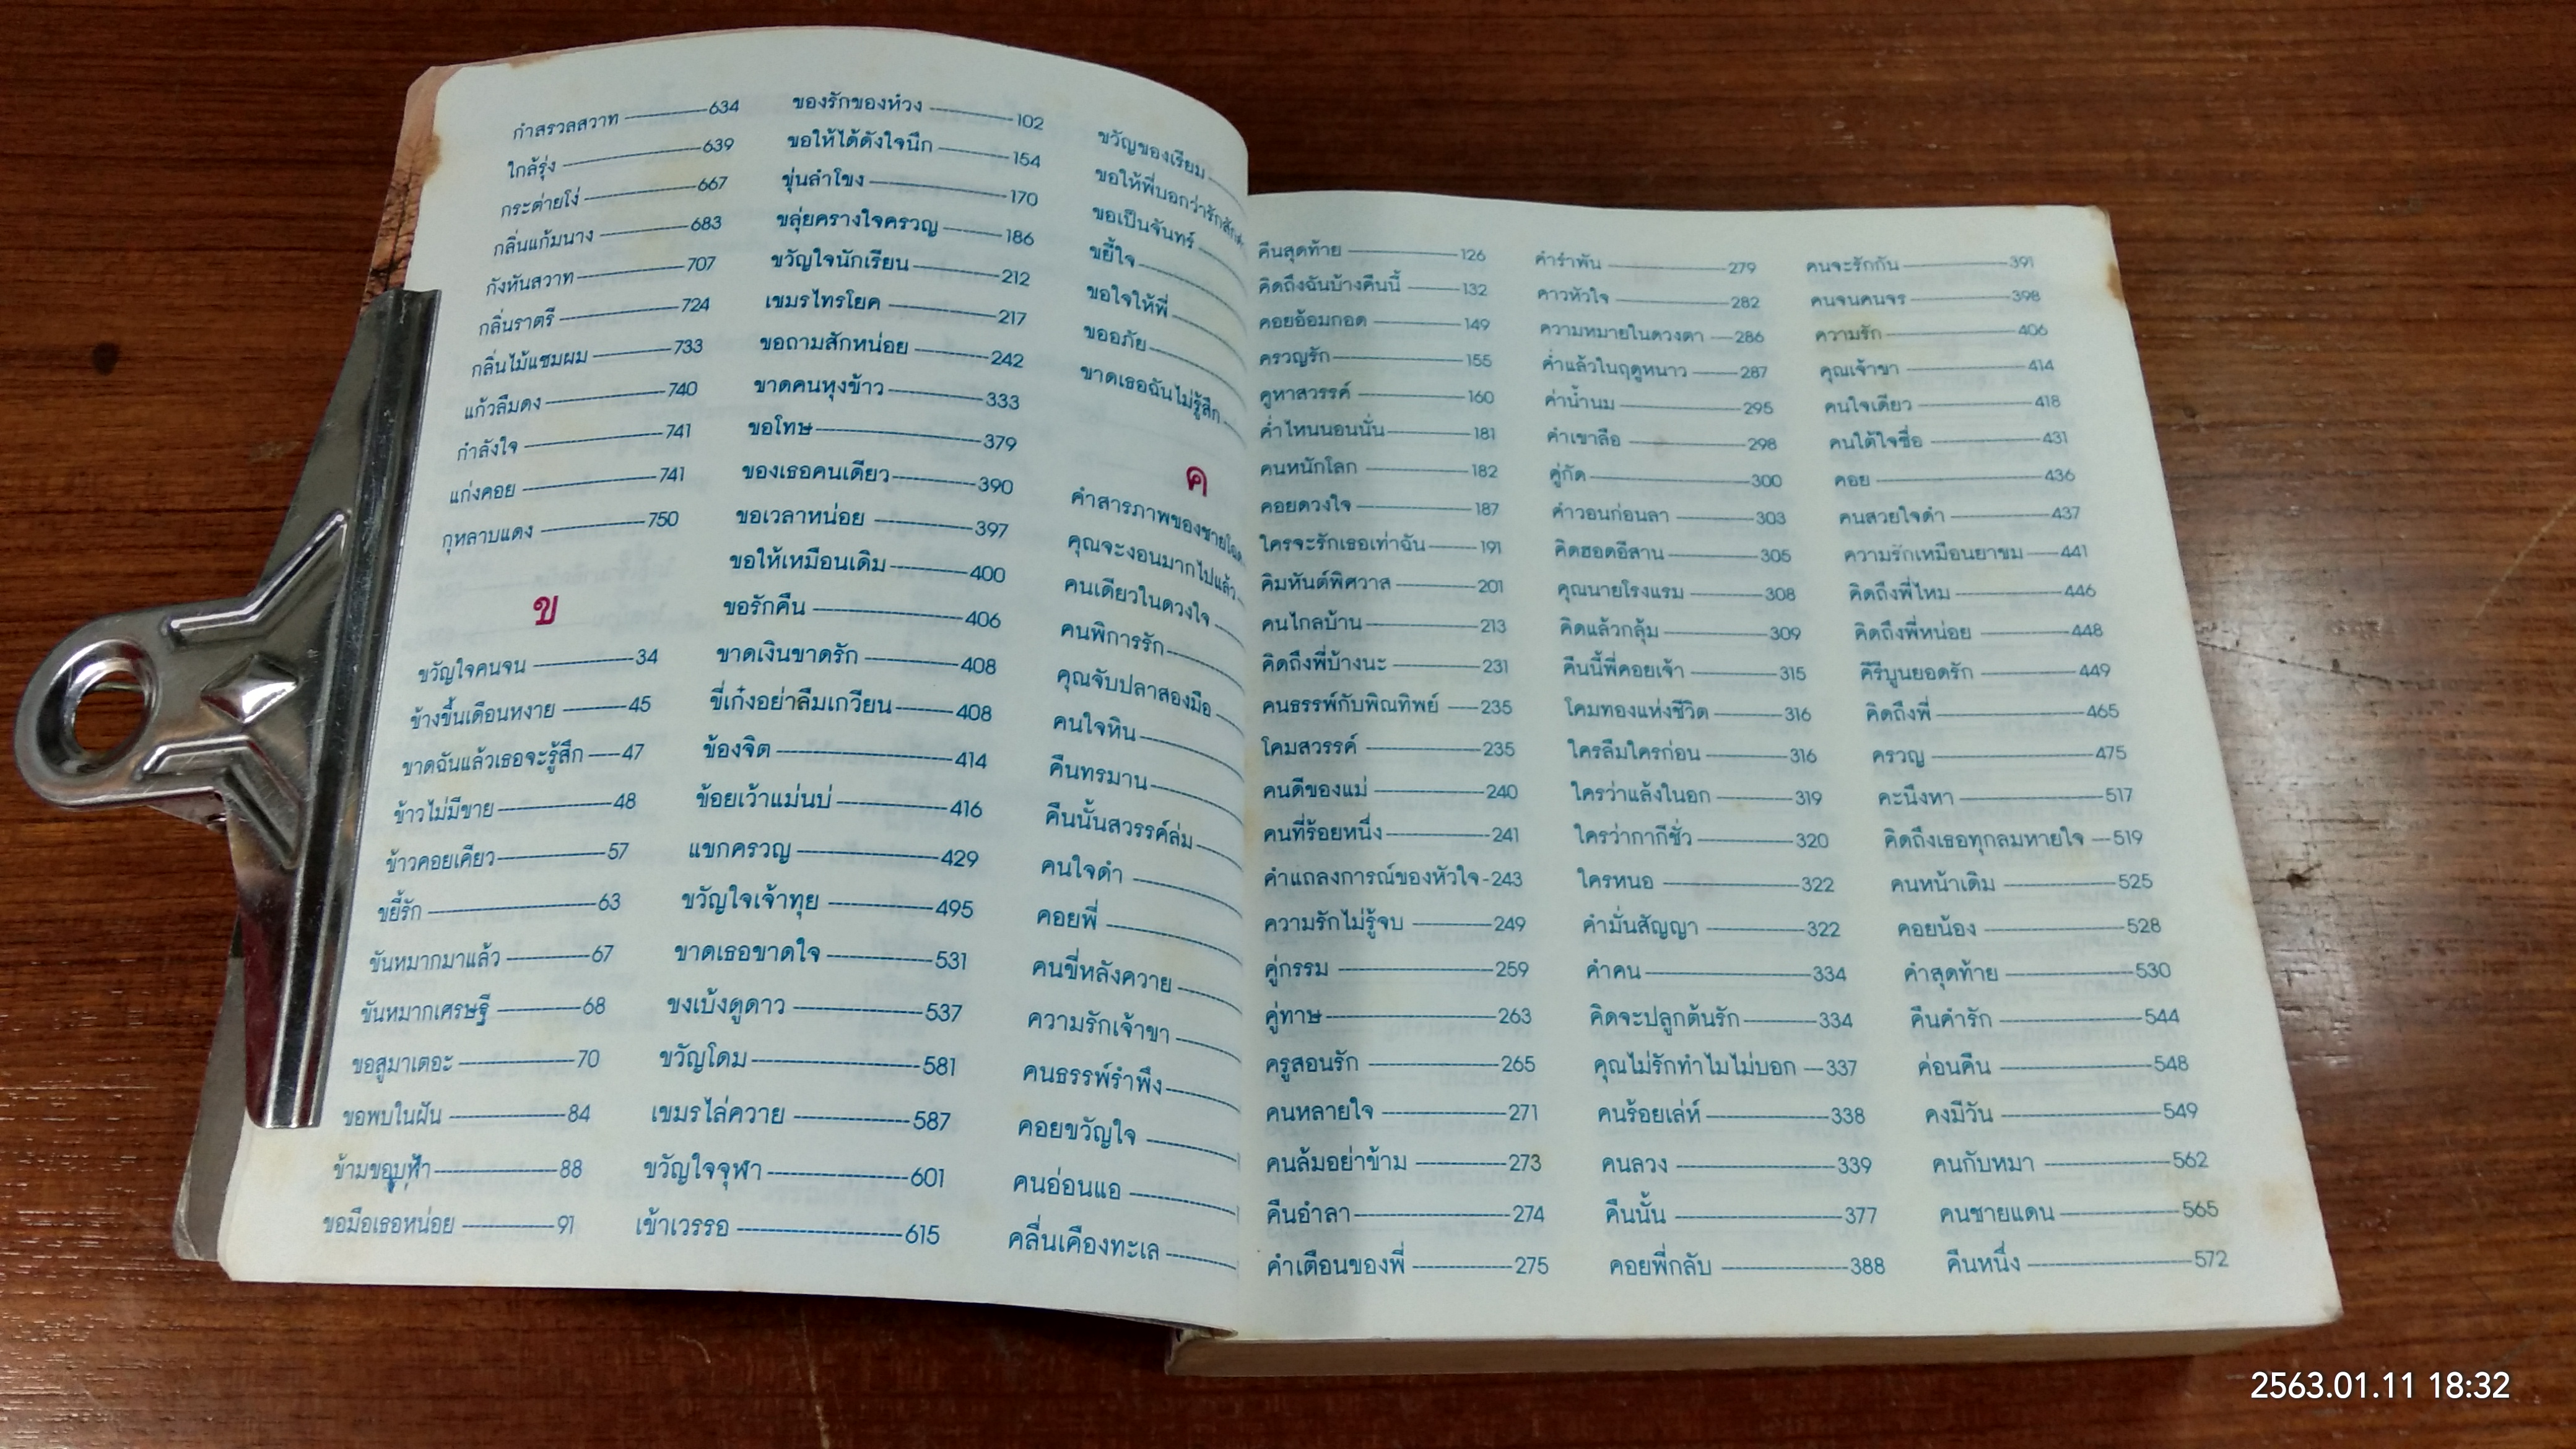 กำสรวลสวาท 634
ใกล้รุ่ง 639
กระต่ายโง่ 667
กลิ่นแก้มนาง 683
กังหันสวาท 707
กลิ่นราตรี 724
กลิ่นไม้แซมผม 733
แก้วลืมดง 740
กำลังใจ 741
แก่งคอย 741
กุหลาบแดง 750
ข
ขวัญใจคนจน 34
ข้างขึ้นเดือนหงาย 45
ขาดฉันแล้วเธอจะรู้สึก 47
ข้าวไม่มีขาย 48
ข้าวคอยเคียว 57
ขยี้รัก 63
ขันหมากมาแล้ว 67
ขันหมากเศรษฐี 68
ขอสูมาเตอะ 70
ขอพบในฝัน 84
ข้ามขอบฟ้า 88
ขอมือเธอหน่อย 91
ของรักของหวง 102
ขอให้ได้ดังใจนึก 154
ขุ่นลำโขง 170
ขลุ่ยครางใจครวญ 186
ขวัญใจนักเรียน 212
เขมรไทรโยค 217
ขอถามสักหน่อย 242
ขาดคนหุงข้าว 333
ขอโทษ 379
ของเธอคนเดียว 390
ขอเวลาหน่อย 397
ขอให้เหมือนเดิม 400
ขอรักคืน 406
ขาดเงินขาดรัก 408
ขี่เก๋งอย่าลืมเกวียน 408
ข้องจิต 414
ข้อยเว้าแม่นบ่ 416
แขกครวญ 429
ขวัญใจเจ้าทุย 495
ขาดเธอขาดใจ 531
ขงเบ้งดูดาว 537
ขวัญโดม 581
เขมรไล่ควาย 587
ขวัญใจจุฬา 601
เข้าเวรรอ 615
ขวัญของเรียม
ขอให้พี่บอกว่ารัก
ขอเป็นจันทร์
ขยี้ใจ
ขอใจให้พี่
ขออภัย
ขาดเธอฉันไม่รู้สึก
ค
คำสารภาพของชาย
คุณจะงอนมากไปแล้ว
คนเดียวในดวงใจ
คนพิการรัก
คุณจับปลาสองมือ
คนใจหิน
คืนทรมาน
คืนนั้นสวรรค์ล่ม
คนใจดำ
คอยพี่
คนขี่หลังควาย
ความรักเจ้าขา
คนธรรพ์รำพึง
คอยขวัญใจ
คนอ่อนแอ
คลื่นเคืองทะเล
คืนสุดท้าย 126
คิดถึงฉันบ้างคืนนี้ 132
คอยอ้อมกอด 149
ครวญรัก 155
คูหาสวรรค์ 160
ค่ำไหนนอนนั่น 181
คนหนักโลก 182
คอยดวงใจ 187
ใครจะรักเธอเท่าฉัน 191
คิมหันต์พิศวาส 201
คนไกลบ้าน 213
คิดถึงพี่บ้างนะ 231
คนธรรพ์กับพิณทิพย์ 235
โคมสวรรค์ 235
คนดีของแม่ 240
คนที่ร้อยหนึ่ง 241
คำแถลงการณ์ของหัวใจ 243
ความรักไม่รู้จบ 249
คู่กรรม 259
คู่ทาษ 263
ครูสอนรัก 265
คนหลายใจ 271
คนล้มอย่าข้าม 273
คืนอำลา 274
คำเตือนของพี่ 275
คำรำพัน 279
คาวหัวใจ 282
ความหมายในดวงตา 286
ค่ำแล้วในฤดูหนาว 287
ค่าน้ำนม 295
คำเขาลือ 298
คู่กัด 300
คำวอนก่อนลา 303
คิดฮอดอีสาน 305
คุณนายโรงแรม 308
คิดแล้วกลุ้ม 309
คืนนี้พี่คอยเจ้า 315
โคมทองแห่งชีวิต 316
ใครลืมใครก่อน 316
ใครว่าแล้งในอก 319
ใครว่ากากีชั่ว 320
ใครหนอ 322
คำมั่นสัญญา 322
คำคน 334
คิดจะปลูกต้นรัก 334
คุณไม่รักทำไมไม่บอก 337
คนร้อยเล่ห์ 338
คนลวง 339
คืนนั้น 377
คอยพี่กลับ 388
คนจะรักกัน 391
คนจนคนจร 398
ความรัก 406
คุณเจ้าขา 414
คนใจเดียว 418
คนใต้ใจซื่อ 431
คอย 436
คนสวยใจดำ 437
ความรักเหมือนยาขม 441
คิดถึงพี่ไหม 446
คิดถึงพี่หน่อย 448
คีรีบูนยอดรัก 449
คิดถึงพี่ 465
ครวญ 475
คะนึงหา 517
คิดถึงเธอทุกลมหายใจ 519
คนหน้าเดิม 525
คอยน้อง 528
คำสุดท้าย 530
คืนคำรัก 544
ค่อนคืน 548
คงมีวัน 549
คนกับหมา 562
คนชายแดน 565
คืนหนึ่ง 572
2563.01.11 18:32